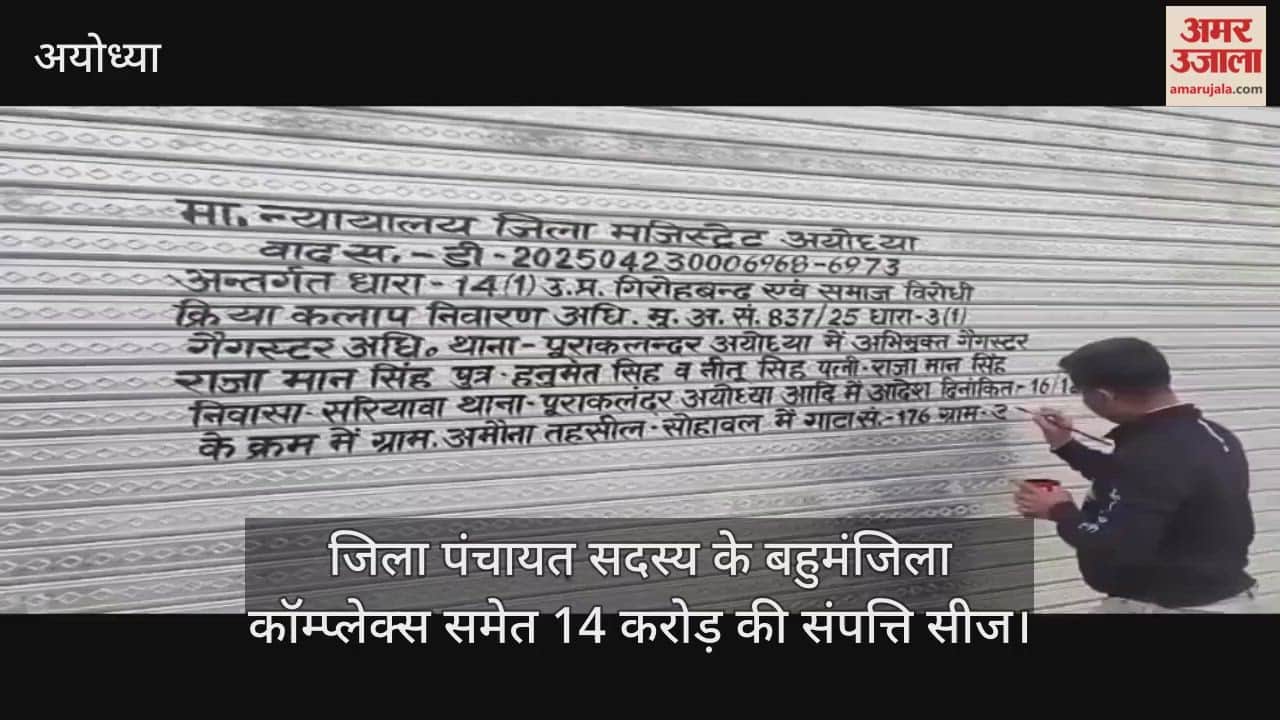 अयोध्या
अमर
उजाला
amarujala.com
मा. न्यायालय जिला मजिस्ट्रेट अयोध्या
वाद स. - डी - 202504230006968-6973
अन्तर्गत धारा - 14(1) उ.प्र. गिरोहबन्द एवं समाज विरोधी
क्रिया कलाप निवारण अधि. मु. अ. सं. 837/25 धारा-3(1)
गैंगस्टर अधि० थाना - पूराकलन्दर अयोध्या में अभियुक्त गैंगस्टर
राजा मान सिंह पुत्र - हनुमेत सिंह व नीतू सिंह पत्नी - राजा मान सिंह
निवासा - सरियावा थाना - पूराकलंदर अयोध्या आदि में आदेश दिनांकित - 16/1
के क्रम में ग्राम. अमौना तहसील - सोहावल में गाटा सं.-176 ग्राम-
जिला पंचायत सदस्य के बहुमंजिला
कॉम्प्लेक्स समेत 14 करोड़ की संपत्ति सीज।